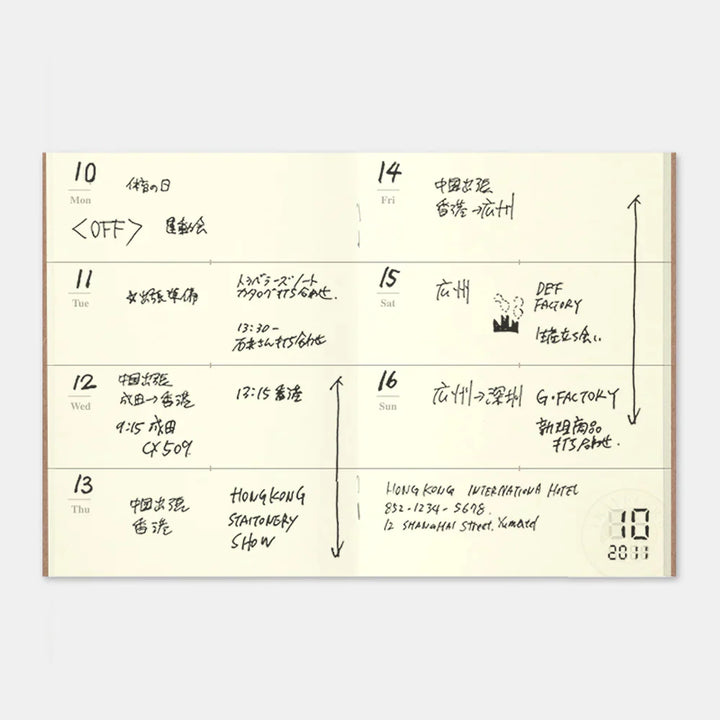 10
Mon
体育の日
<OFF> 運動会
11
Tue
出張準備
トラベラーズノート
カタログ打ち合わせ.
13:30-
さん打ち合わせ
12
Wed
中国出張
成田→香港
9:15 成田
CX509
13:15 香港
13
Thu
中国出張
香港
HONG KONG
STAITONERY
SHOW
14
Fri
中国出張
香港→広州
15
Sat
広州
DEF
FACTORY
生産立ち会い
16
Sun
広州→深圳
G・FACTORY
新規商品
打ち合わせ.
HONG KONG INTERNATIONA HOTEL
852-1234-5678.
12 SHANGHAI Street.
10
2011